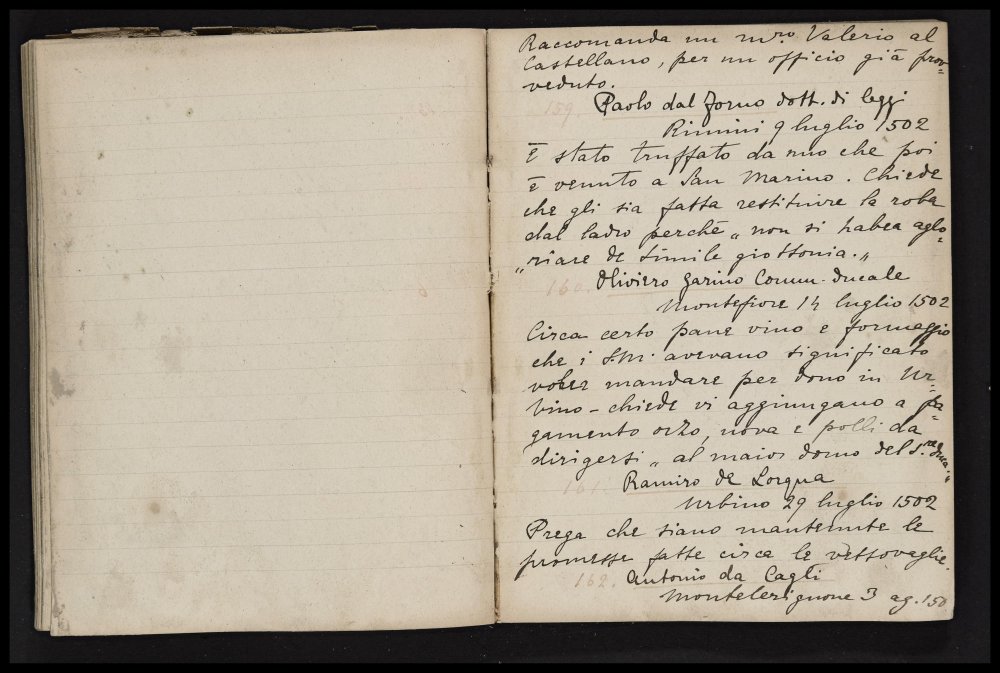 Raccomanda un m.ro Valerio al
Castellano, per un officio già prov=
veduto.
159.
Paolo dal Forno dott. di leggi
Rimini 9 luglio 1502
È stato truffato da uno che poi
è venuto a San Marino. Chiede
che gli sia fatta restituire la roba
dal ladro perchè „ non si habea aglo=
„ riare de simile giottonia. „
160.
Oliviero Garino Comm. ducale
Montefiore 14 luglio 1502
Circa certo pane vino e formaggio
che i S.M. avevano significato
voler mandare per dono in Ur=
bino - chiede vi aggiungano a pa=
gamento orzo, uova e polli da
dirigersi „ al maior domo del S.re duca. „
161.
Ramiro de Lorqua
Urbino 29 luglio 1502
Prega che siano mantenute le
promesse fatte circa le vettovaglie.
162.
Antonio da Cagli
Montelerignone 3 ag. 150